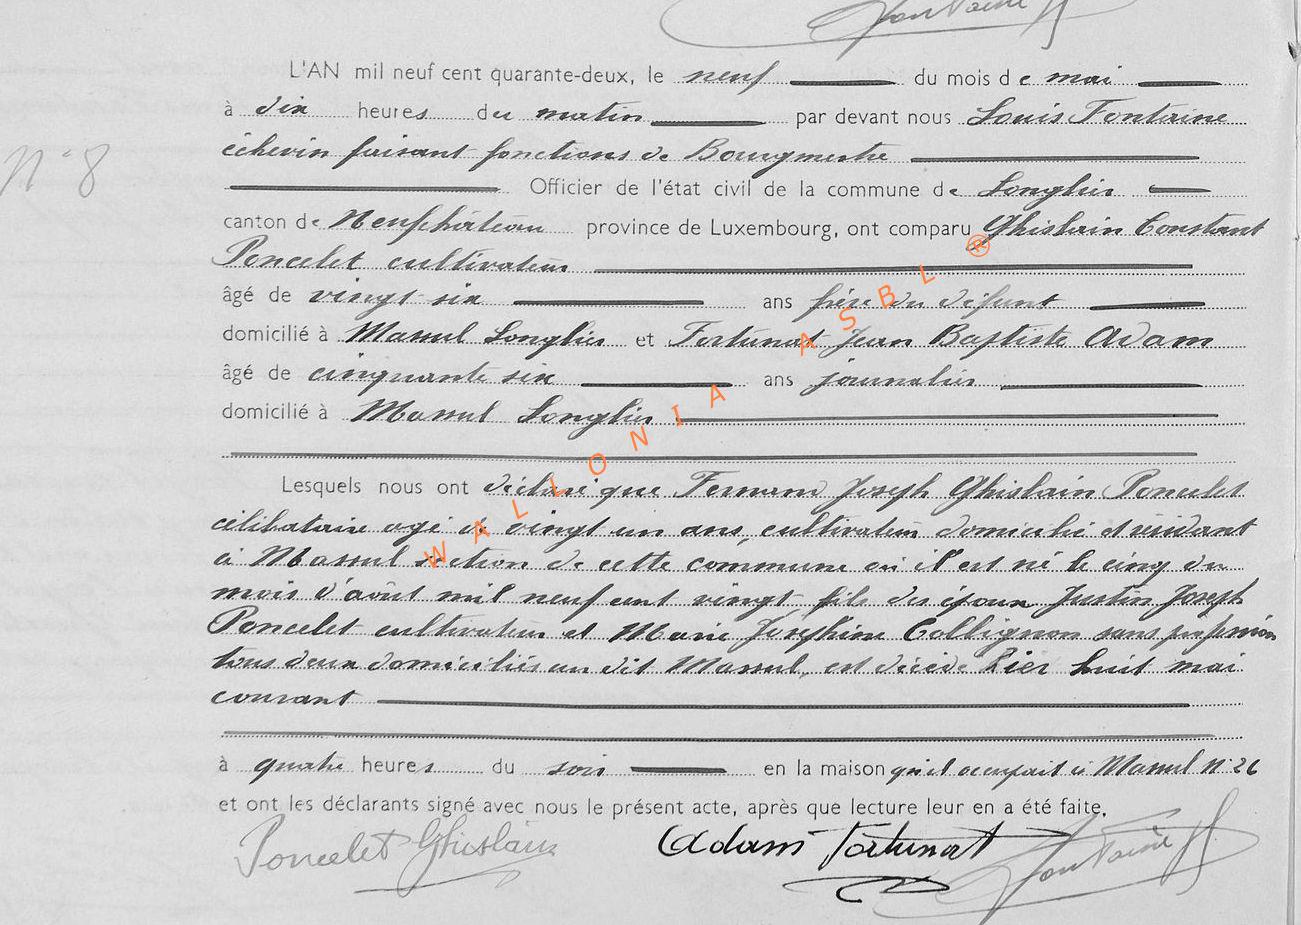 Fontaine
L'AN mil neuf cent quarante-deux, le neuf du mois de mai
à dix heures du matin par devant nous Louis Fontaine
échevin faisant fonctions de Bourgmestre
N° 8
Officier de l'état civil de la commune de Longlier
canton de Neufchâteau province de Luxembourg, ont comparu Ghislain Constant
Poncelet cultivateur
âgé de vingt six ans frère du défunt
domicilié à Massul Longlier et Fortunat Jean Baptiste Adam
âgé de cinquante six ans journalier
domicilié à Massul Longlier
Lesquels nous ont déclaré que Fernand Joseph Ghislain Poncelet
célibataire agé de vingt un ans, cultivateur domicilié et résidant
à Massul section de cette commune où il est né le cinq du
mois d'août mil neuf cent vingt fils des époux Justin Joseph
Poncelet cultivateur et Marie Joséphine Collignon sans profession
tous deux domiciliés au dit Massul, est décédé hier huit mai
courant
à quatre heures du soir en la maison qu'il occupait à Massul N° 26
et ont les déclarants signé avec nous le présent acte, après que lecture leur en a été faite.
Poncelet Ghislain Adam Fortunat Fontaine
WALLONIA ASBL ®